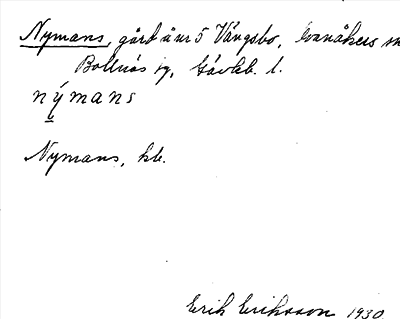 Nymans, gård å nr 5 Vängsbo, Svanåkers
Bollnäs sg, Gävleb. l.
nýmans
Nymans, hb.
Erik Eriksson 1930.